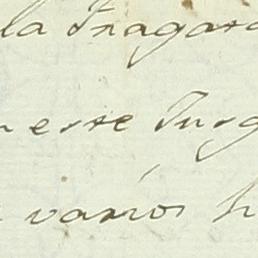 la Fragara
n este Juzg
varios h